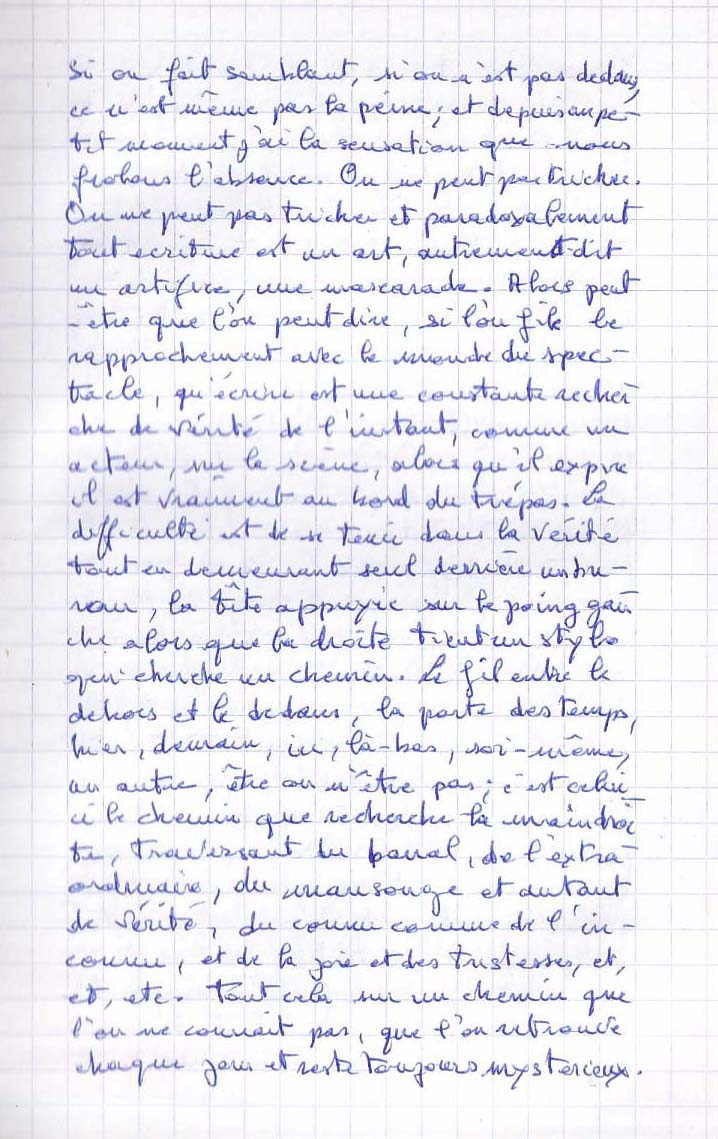 Si on fait semblant, si on n'est pas dedans,
ce n'est même pas la peine, et depuis un pe-
tit moment j'ai la sensation que nous
frolons l'absence. On ne peut pas tricher.
On ne peut pas tricher et paradoxalement
tout ecriture est un art, autrement dit
un artifice, une mascarade. Alors peut
-être que l'on peut dire, si l'on file le
rapprochement avec le monde du spec-
tacle, qu'écrire est une constante recher
che de vérité de l'instant, comme un
acteur, sur la scène, alors qu'il expire
il est vraiment au bord du trépas. La
difficulté est de se tenir dans la vérité
tout en demeurant seul derrière un bu-
reau, la tête appuyée sur le poing gau
che alors que la droite tient un stylo
qui cherche un chemin. Le fil entre le
dehors et le dedans, la porte des temps,
hier, demain, ici, là-bas, soi-même,
un autre, être ou n'être pas; c'est celui
ci le chemin que recherche la main droi
te, traversant du banal, de l'extra-
ordinaire, du mansonge et autant
de vérité, du connu comme de l'in-
connu, et de la joie et des tristesses, et,
et, etc. Tout cela sur un chemin que
l'on ne connait pas, que l'on retrouve
chaque jour et reste toujours mystérieux.